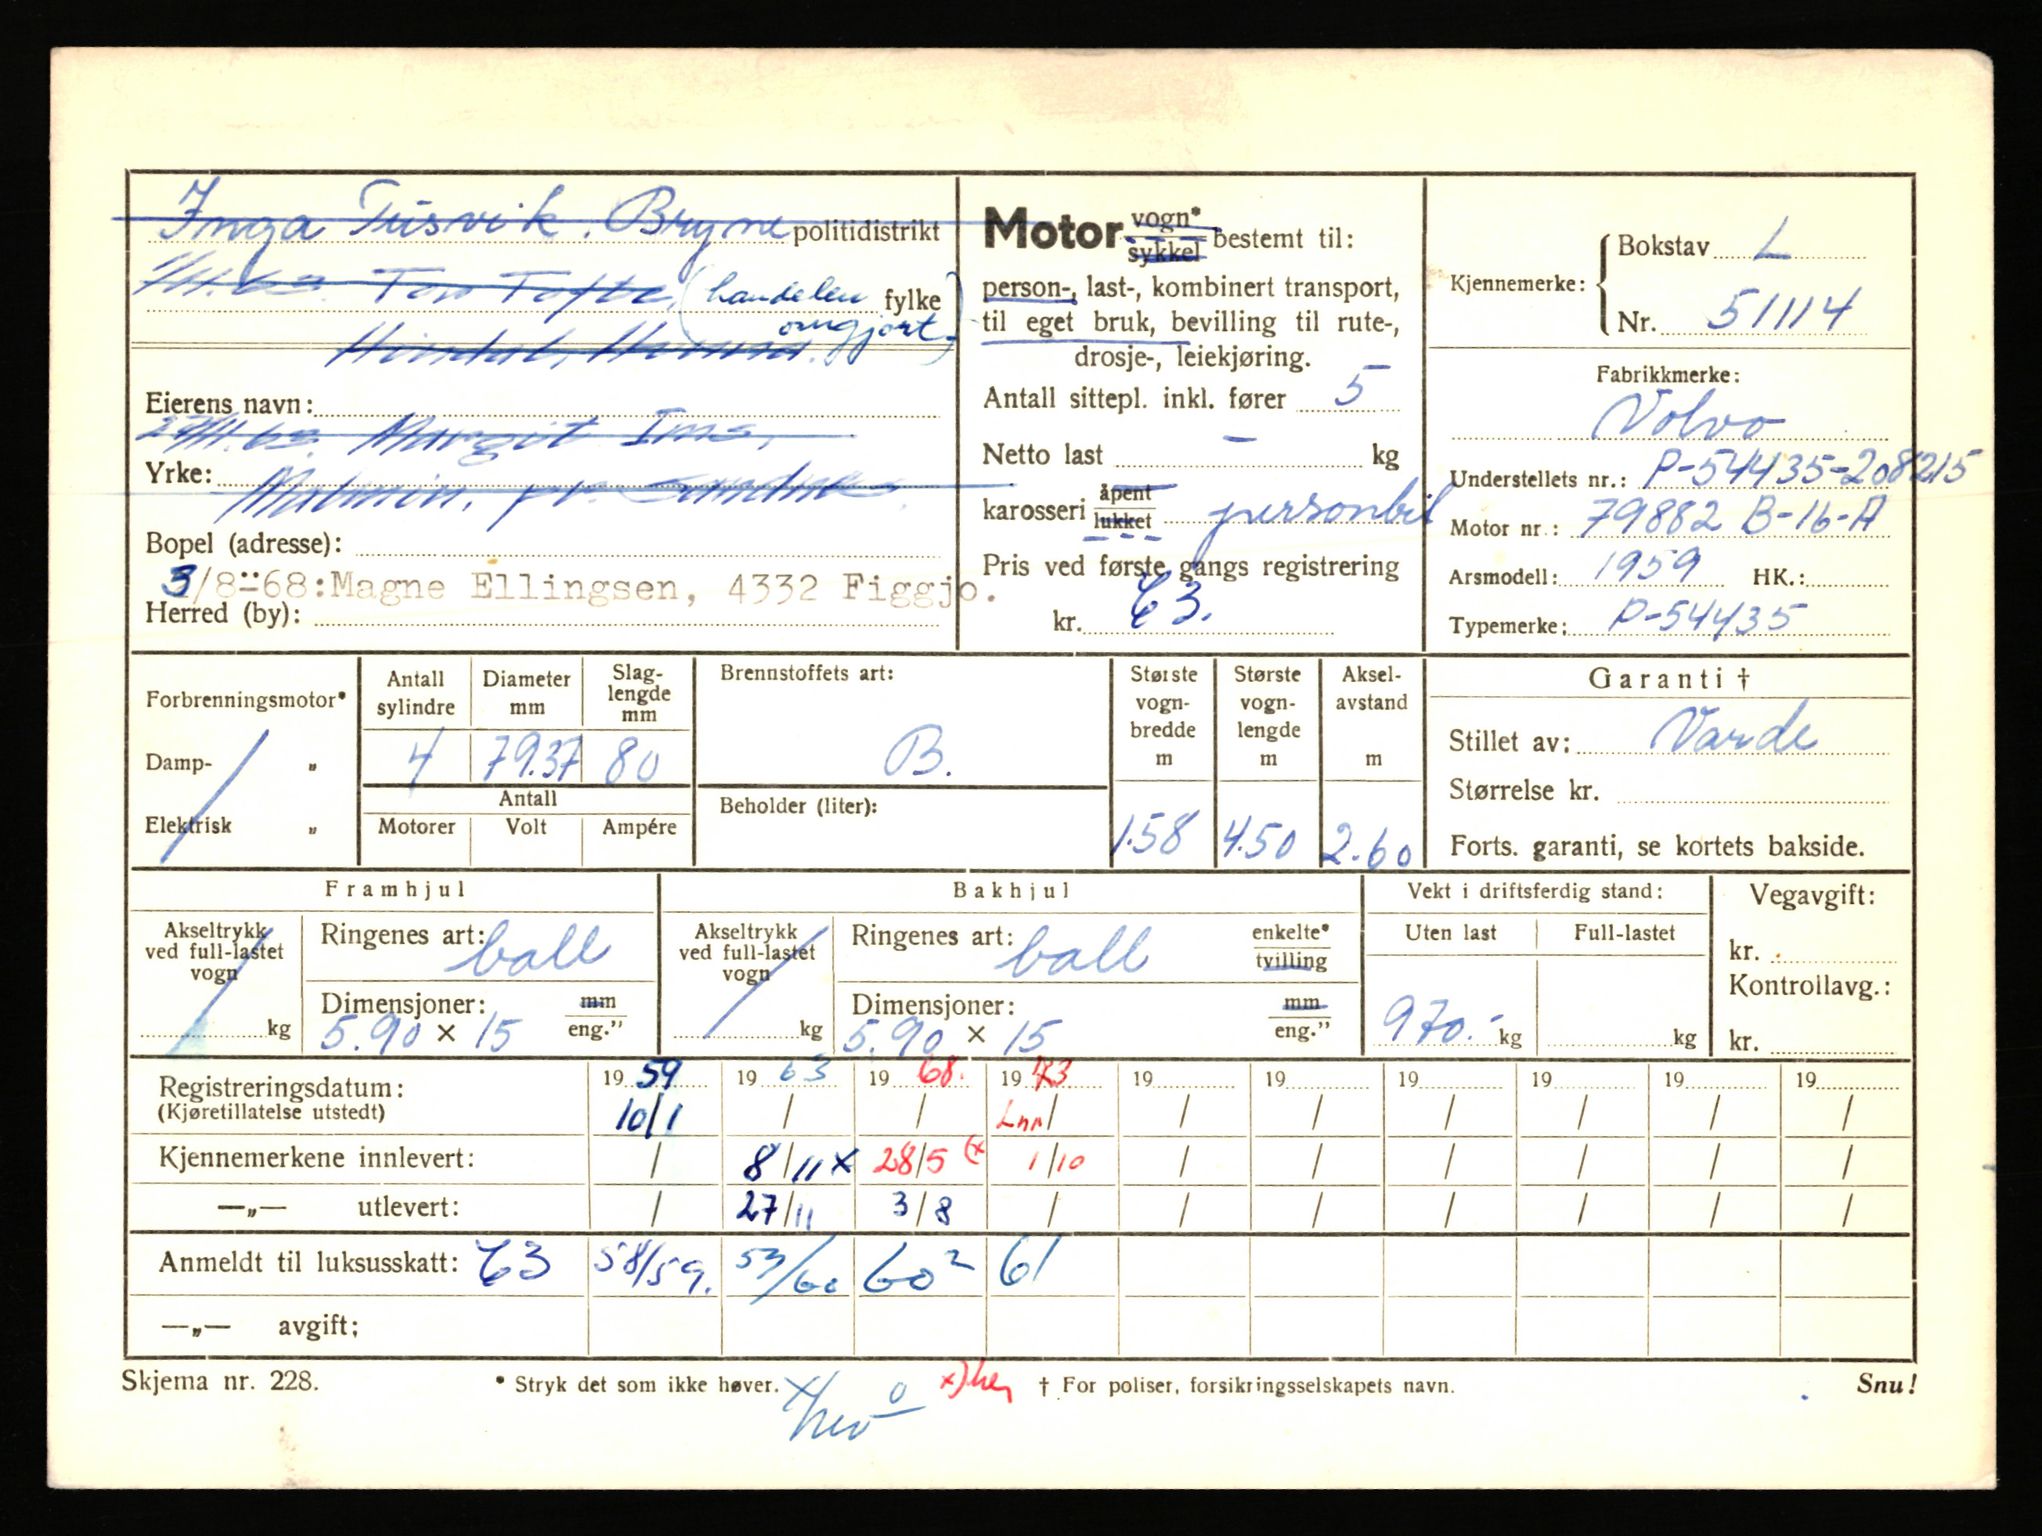 Inga Tusvik. Bryne politidistrikt
1/11.63. Tor Tofte, (handelen fylke
omgjort)
Eierens navn:
27/11.63. Margit Ims,
Yrke:
Bopel (adresse):
3/8-68: Magne Ellingsen, 4332 Figgjo.
Herred (by):
Motor vogn* sykkel bestemt til:
person-, last-, kombinert transport,
til eget bruk, bevilling til rute-,
drosje-, leiekjøring.
Antall sittepl. inkl. fører 5
Netto last – kg
karosseri åpent lukket personbil
Pris ved første gangs registrering
kr. C3.
Kjennemerke: Bokstav L
Nr. 51114
Fabrikkmerke:
Volvo
Understellets nr.: P-54435-208215
Motor nr.: 79882 B-16-A
Arsmodell: 1959 HK.:
Typemerke: P-54435
Forbrenningsmotor*
Damp- „
Elektrisk „
Antall sylindre 4
Diameter mm 79.37
Slag-lengde mm 80
Antall
Motorer Volt Ampére
Brennstoffets art:
B.
Beholder (liter):
Største vogn-bredde m 1.58
Største vogn-lengde m 4.50
Aksel-avstand m 2.60
Garanti †
Stillet av: Varde
Størrelse kr.
Forts. garanti, se kortets bakside.
Framhjul
Akseltrykk ved full-lastet vogn kg
Ringenes art: ball
Dimensjoner: mm eng.”
5.90 × 15
Bakhjul
Akseltrykk ved full-lastet vogn kg
Ringenes art: ball enkelte* tvilling
Dimensjoner: mm eng.”
5.90 × 15
Vekt i driftsferdig stand:
Uten last Full-lastet
970.- kg kg
Vegavgift:
kr.
Kontrollavg.:
kr.
Registreringsdatum: 1959 1963 1968. 1973 19 19 19 19 19 19
(Kjøretillatelse utstedt) 10/1 / / Lnr/ / / / / / /
Kjennemerkene innlevert: / 8/11 x 28/5 (x 1/10 / / / / / /
—„— utlevert: / 27/11 3/8 / / / / / / /
Anmeldt til luksusskatt: C3 58/59. 53/60 60² 61
—„— avgift;
Skjema nr. 228. * Stryk det som ikke høver. † For poliser, forsikringsselskapets navn. Snu!